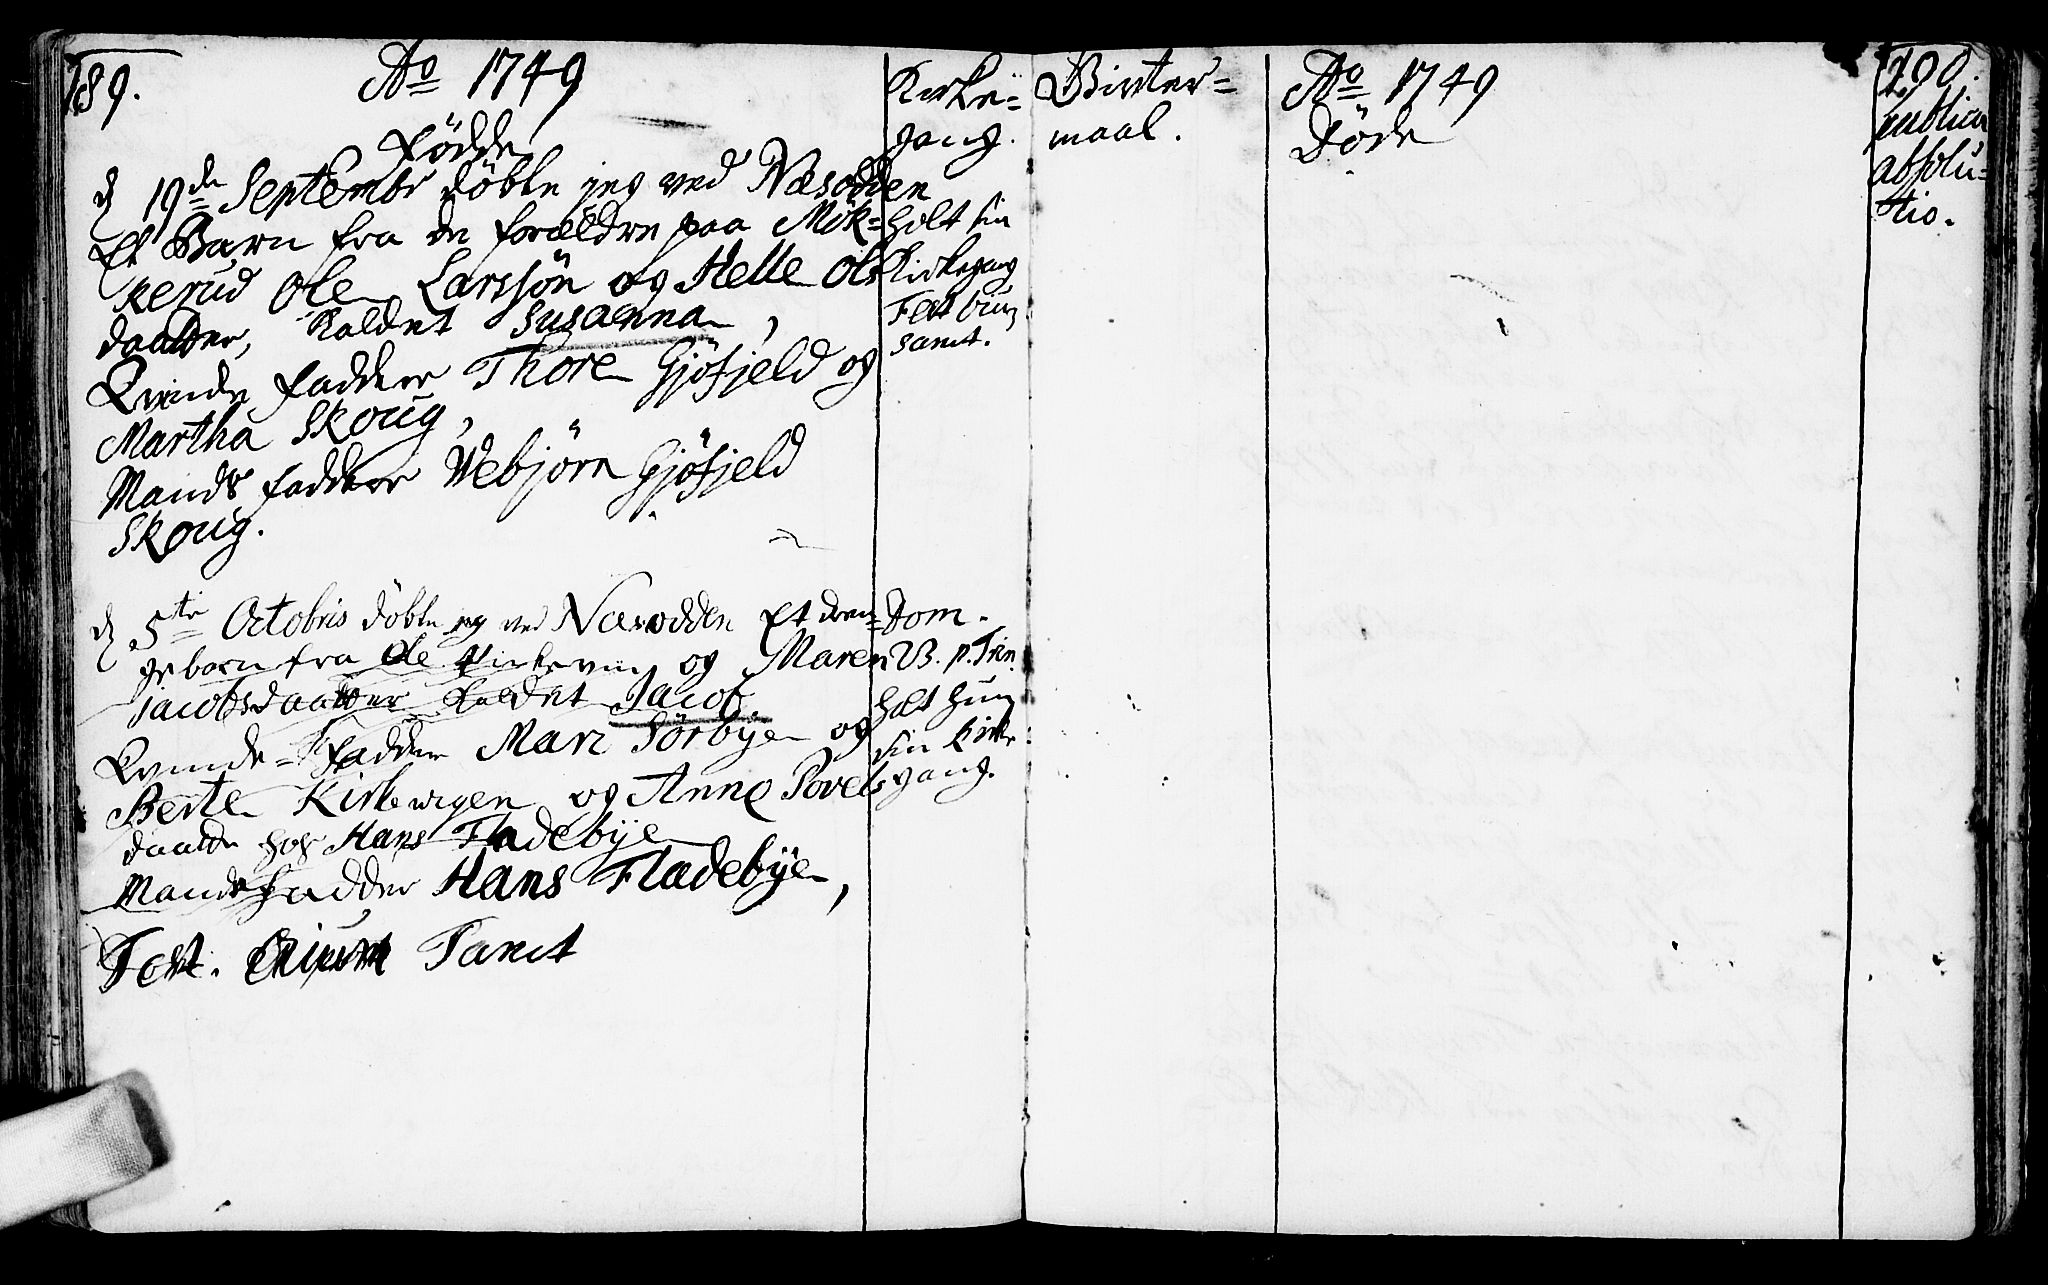 189.
Ao 1749
Födde
d 19de Septembr döbte jeg ved Næsodden
Et Barn fra de forældre paa Mök=
kerud Ole Larssön og Helle Ols
daatter, kaldet Susanna,
Qvinde faddere Thore Gjöfjeld og
Martha Skoug,
Mands faddere Webjörn Gjöfjeld
Skoug.
d 5te Octobris döbte jeg ved Næsodden Et dren=
gebarn fra Ole og Maren
jacobsdaatter kaldet Jacob.
Qvinde=Fadder Mari Sörbÿe og
Berte Kirkewigen og Anne Povels
daatter hos Hans Fladebÿe
Mandsfadder Hans Fladebÿe,
Test. Tamt
Kirke=
gang.
Holt sin
Kirkegang
Fest
samt.
Dom.
23. p. Trin.
Holt hun
sin Kirke
gang.
Winter=
maal.
Ao 1749
Döde
190.
publica
absolu=
tio.